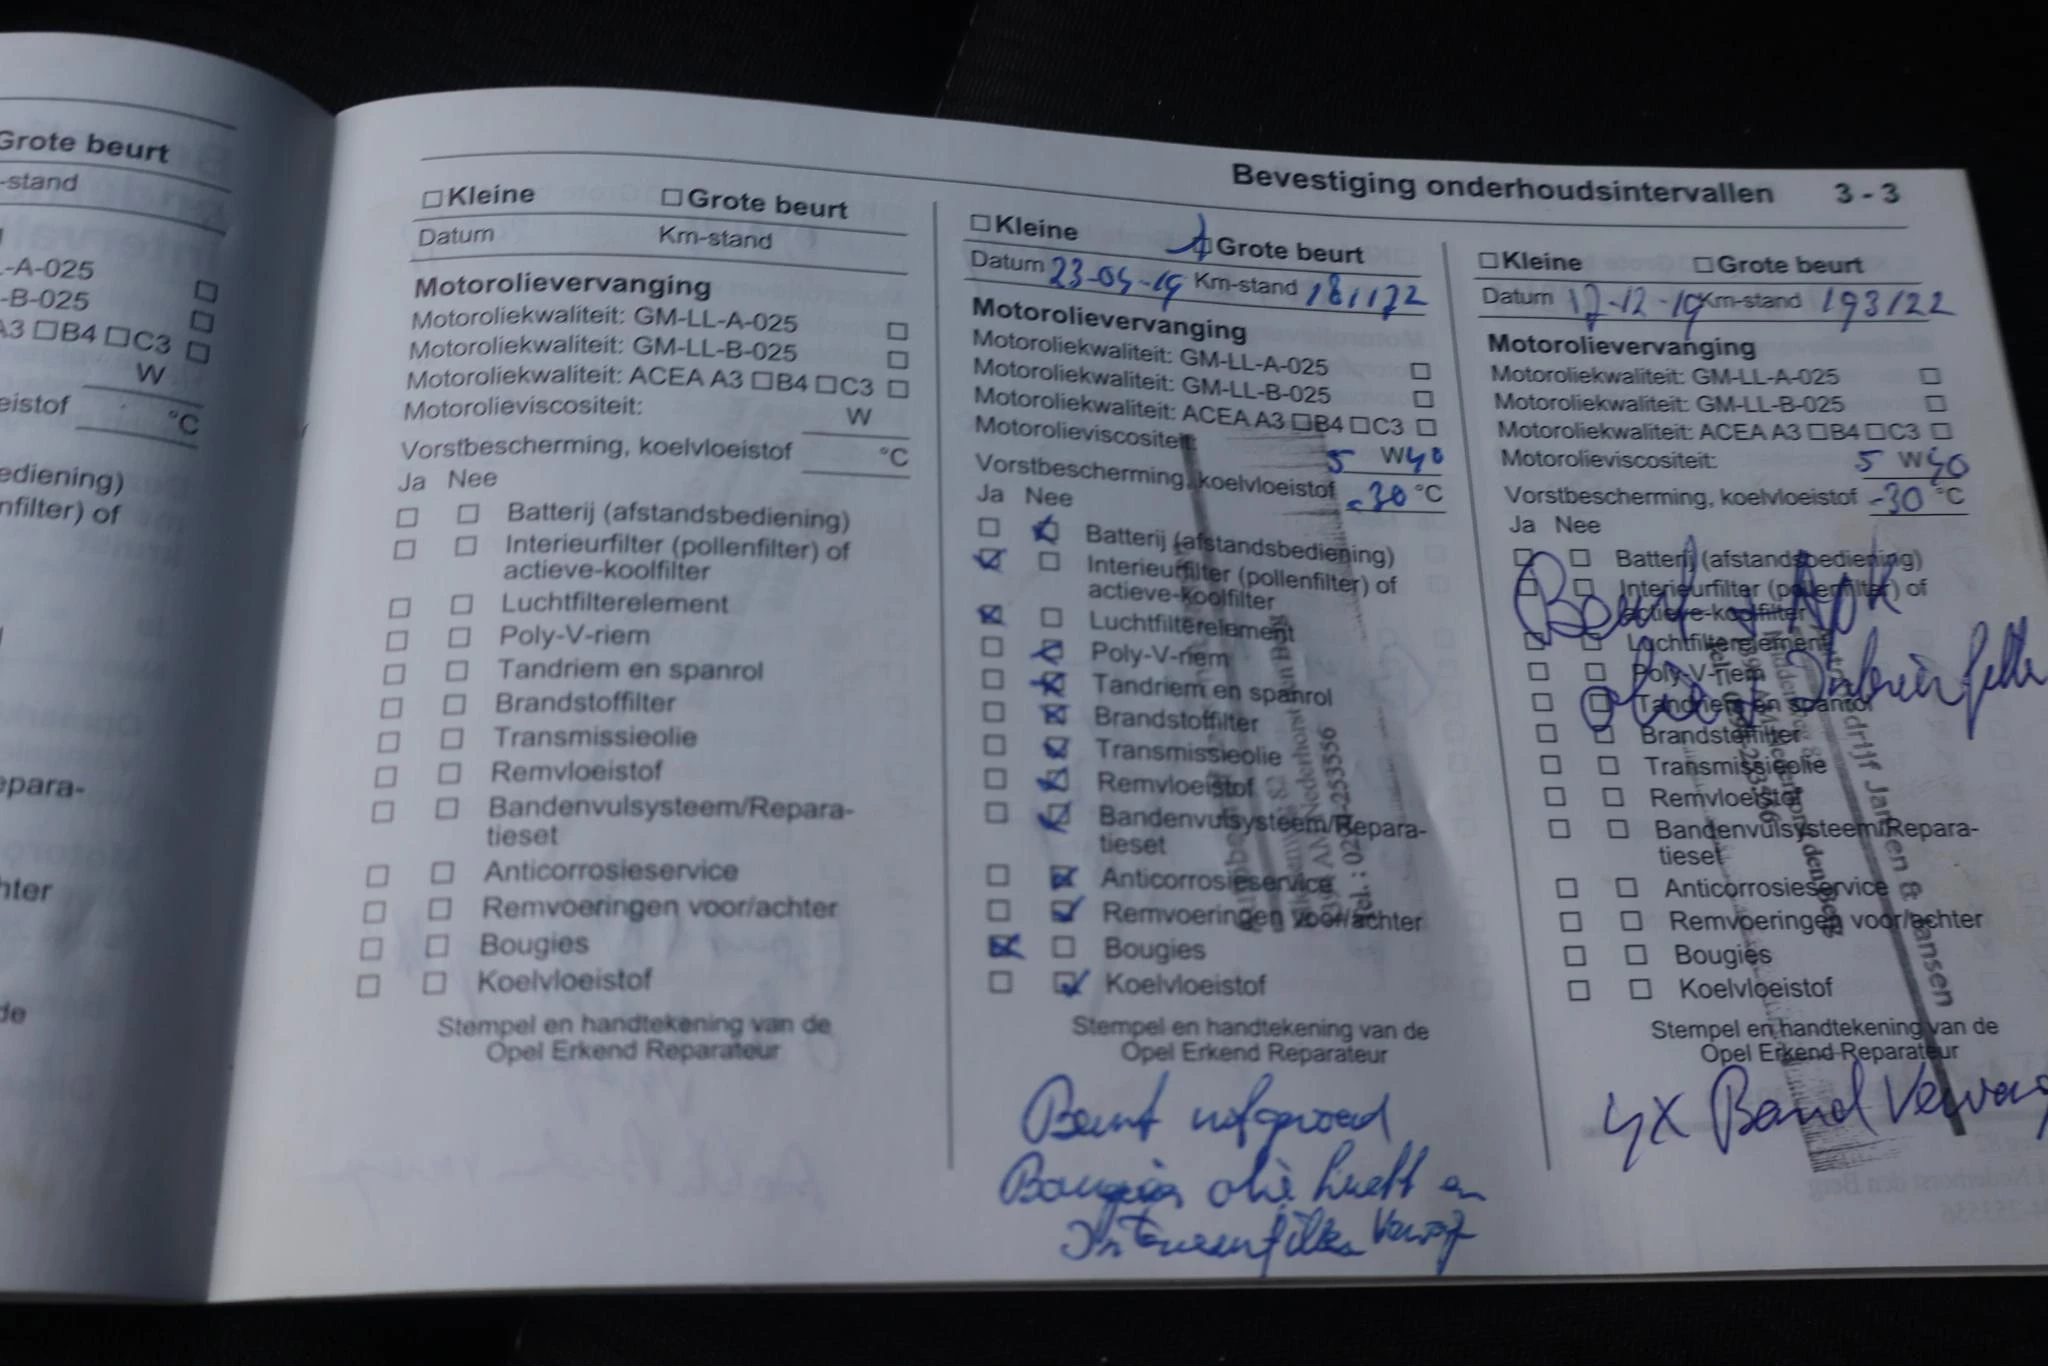 Grote beurt
-stand
-A-025
-B-025
A3 □B4 □C3
W
eistof °C
ediening)
nfilter) of
epara-
hter
de
Bevestiging onderhoudsintervallen 3 - 3
□Kleine □Grote beurt
Datum Km-stand
Motorolievervanging
Motoroliekwaliteit: GM-LL-A-025 □
Motoroliekwaliteit: GM-LL-B-025 □
Motoroliekwaliteit: ACEA A3 □B4 □C3 □
Motorolieviscositeit: W
Vorstbescherming, koelvloeistof °C
Ja Nee
□ □ Batterij (afstandsbediening)
□ □ Interieurfilter (pollenfilter) of
actieve-koolfilter
□ □ Luchtfilterelement
□ □ Poly-V-riem
□ □ Tandriem en spanrol
□ □ Brandstoffilter
□ □ Transmissieolie
□ □ Remvloeistof
□ □ Bandenvulsysteem/Repara-
tieset
□ □ Anticorrosieservice
□ □ Remvoeringen voor/achter
□ □ Bougies
□ □ Koelvloeistof
Stempel en handtekening van de
Opel Erkend Reparateur
□Kleine □Grote beurt
Datum 23-04-19 Km-stand 181172
Motorolievervanging
Motoroliekwaliteit: GM-LL-A-025 □
Motoroliekwaliteit: GM-LL-B-025 □
Motoroliekwaliteit: ACEA A3 □B4 □C3 □
Motorolieviscositeit: 5 W40
Vorstbescherming, koelvloeistof -30 °C
Ja Nee
□ ☒ Batterij (afstandsbediening)
☒ □ Interieurfilter (pollenfilter) of
actieve-koolfilter
☒ □ Luchtfilterelement
□ ☒ Poly-V-riem
□ ☒ Tandriem en spanrol
□ ☒ Brandstoffilter
□ ☒ Transmissieolie
□ ☒ Remvloeistof
□ ☒ Bandenvulsysteem/Repara-
tieset
□ ☒ Anticorrosieservice
□ ☒ Remvoeringen voor/achter
☒ □ Bougies
□ ☒ Koelvloeistof
Stempel en handtekening van de
Opel Erkend Reparateur
Beurt uitgevoerd
Bougies olie lucht en
Interieurfilter
□Kleine □Grote beurt
Datum 17-12-19 Km-stand 193122
Motorolievervanging
Motoroliekwaliteit: GM-LL-A-025 □
Motoroliekwaliteit: GM-LL-B-025 □
Motoroliekwaliteit: ACEA A3 □B4 □C3 □
Motorolieviscositeit: 5 W40
Vorstbescherming, koelvloeistof -30 °C
Ja Nee
□ □ Batterij (afstandsbediening)
□ □ Interieurfilter (pollenfilter) of
actieve-koolfilter
□ □ Luchtfilterelement
□ □ Poly-V-riem
□ □ Tandriem en spanrol
□ □ Brandstoffilter
□ □ Transmissieolie
□ □ Remvloeistof
□ □ Bandenvulsysteem/Repara-
tieset
□ □ Anticorrosieservice
□ □ Remvoeringen voor/achter
□ □ Bougies
□ □ Koelvloeistof
Jansen & Jansen
Stempel en handtekening van de
Opel Erkend Reparateur
4x Band